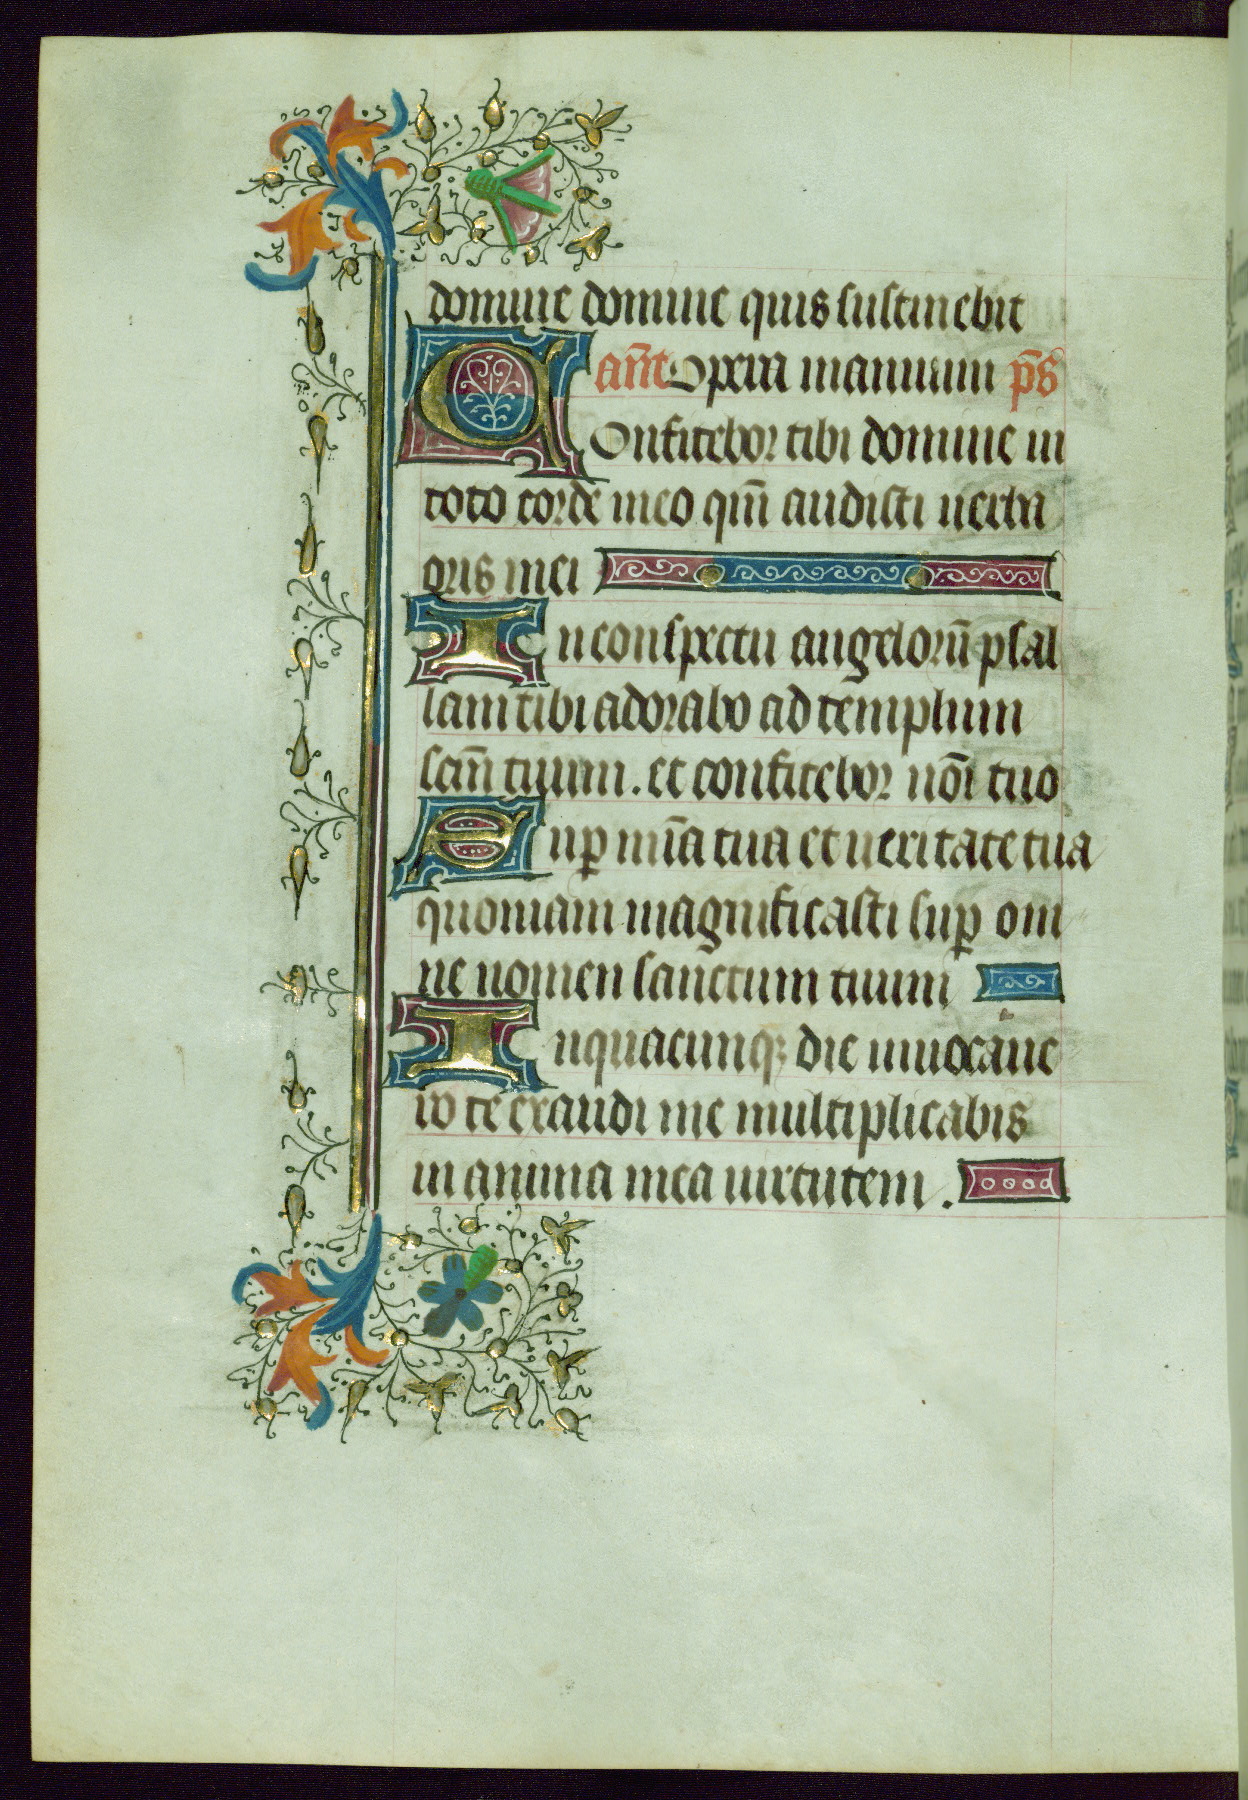 domine domine quis sustinebit
an̄t Opera manuum p̄s
Confitebor tibi domine in
toto corde meo qm̄ audisti uerba
oris mei
In conspectu angelorū psal
lam tibi adorabo ad templum
scm̄ tuum. et confitebor noī tuo
Sup mīa tua et ueritate tua
quoniam magnificasti sup om
ne nomen sanctum tuum
In quacunqꝫ die inuocaue
ro te exaudi me multiplicabis
in anima mea uirtutem.